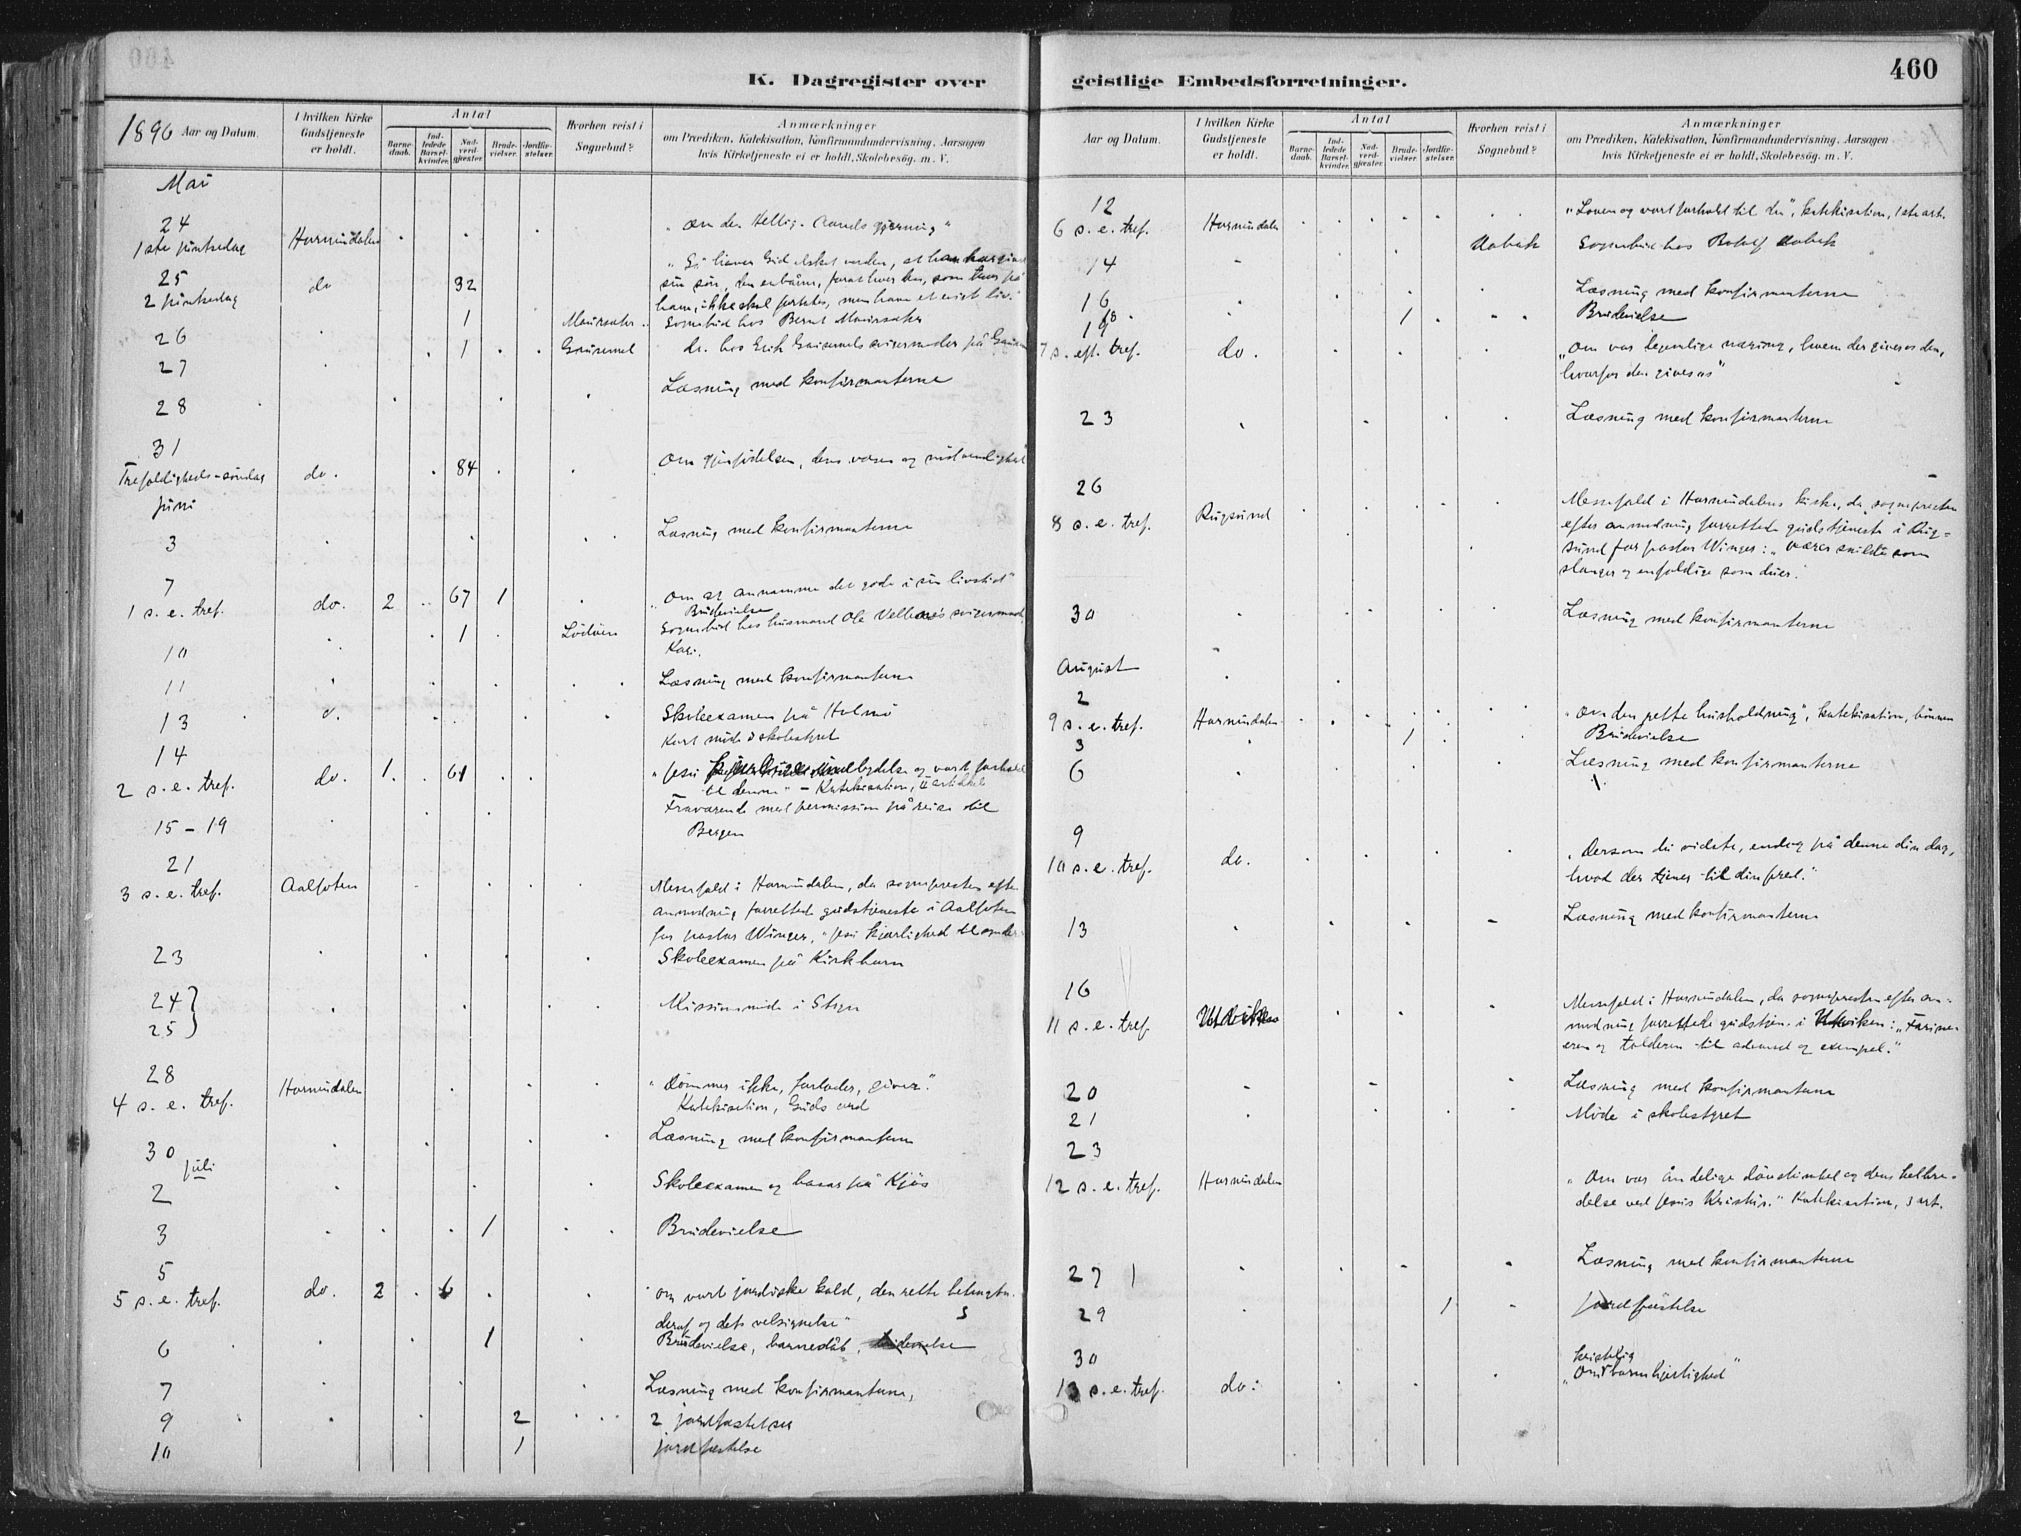 K. Dagregister over
1896 Aar og Datum.
I hvilken Kirke Gudstjeneste er holdt.
Antal
Barnedaab.
Indledede Barselkvinder.
Nadverdgjester.
Brudevielser.
Jordfæstelser.
Hvorhen reist i Sognebud?
Anmærkninger
om Prædiken, Katekisation, Konfirmandundervisning, Aarsagen
hvis Kirketjeneste ei er holdt, Skolebesøg. m. V.
Mai
24
1ste pintsedag Hornindalen "Om den Hellig-Aands gjerning"
"Så haver Gud elsket verden, at han har givet
25 sin søn, den enbårne, forat hver den, som tror på
2 pintsedag do 92 ham, ikke skal fortabes, men have et evigt liv."
1 Maurseter Sognebud hos Bernt Maurseter
26 1 do. hos Erik
27
Læsning med konfirmanterne
28
31
Trefoldigheds-søndag do. 84 Om gjenfødelsen, dens væsen og nødvendighed
Juni
3 Læsning med konfirmanterne
7 "Om at annamme det gode i sin livstid"
1 s. e. tref. do. 2 67 1 Brudevielse
1 Sognebud hos husmand Ole
10 Kari.
11 Læsning med konfirmanterne
13 Skoleexamen på Holmø
Kort møde i skolestyret
14
2 s. e. tref. do. 1. 61 "Jesu indbydelse og vort forhold
til denne" - Katekisation, II artikkel
Fraværende med permission på reise til
15 - 19 Bergen
21
3 s. e. tref. Aalfoten Messefald i Hornindalen, da sognepresten efter
anmodning forrettede gudstjeneste i Aalfoten
for pastor Winger, "Jesu kjærlighed til syndere
23 Skoleexamen på Kirkhorn
24 } Missionsmøde i Stryn
25 }
28 "Dømmer ikke, forlader, giver."
4 s. e. tref. Hornindalen Katekisation, Guds ord
Læsning med konfirmanterne
30
Juli
2 Skoleexamen og basar på Kjøs
3 1 Brudevielse
5
5 s. e. tref. do. 2 6 "Om vort jordiske kald, den rette
deraf og dets velsignelse"
6 1 Brudevielse, barnedåb,
7 Læsning med konfirmanterne,
9 2 2 jordfæstelser
10 1 jordfæstelse
geistlige Embedsforretninger.
460
Aar og Datum.
I hvilken Kirke Gudstjeneste er holdt.
Antal
Barnedaab.
Indledede Barselkvinder.
Nadverdgjester.
Brudevielser.
Jordfæstelser.
Hvorhen reist i Sognebud?
Anmærkninger
om Prædiken, Katekisation, Konfirmandundervisning, Aarsagen
hvis Kirketjeneste ei er holdt, Skolebesøg. m. V.
12 "Loven og vort forhold til den", katekisation, 1ste art.
6 s. e. tref. Hornindalen
14 Sognebud hos
16 Læsning med konfirmanterne
18 1 Brudevielse
19
7 s. eft. tref. do. "Om vor legemlige næring, hvem der giver os den,
hvorfor den gives os"
23 Læsning med konfirmanterne
26
8 s. e. tref. Rugsund Messefald i Hornindalens kirke, da sognepresten
efter anmodning forrettede gudstjeneste i Rug=
sund for pastor Winger: "Værer snilde som
slanger og enfoldige som duer."
30 Læsning med konfirmanterne
August
2
9 s. e. tref. Hornindalen "Om den rette husholdning", katekisation, bønnen
3 1 Brudevielse
6 Læsning med konfirmanterne
9
10 s. e. tref. do. "Dersom du vidste, endog på denne din dag,
hvad der tjener til din fred."
13 Læsning med konfirmanterne
16
11 s. e. tref. Utviken Messefald i Hornindalen, da sognepresten efter an-
modning forrettede gudstjen. i Utviken: "Farisæ-
eren og tolderen til advarsel og exempel."
20 Læsning med konfirmanterne
21 Møde i skolestyret
23
12 s. e. tref. Hornindalen "Om vor åndelige døvstumhed og dens helbre-
delse ved Jesus Kristus." Katekisation, 3 art.
27 Læsning med konfirmanterne
29 1 jordfæstelse
30
13 s. e. tref. do. "Om kristelig barmhjertighed"